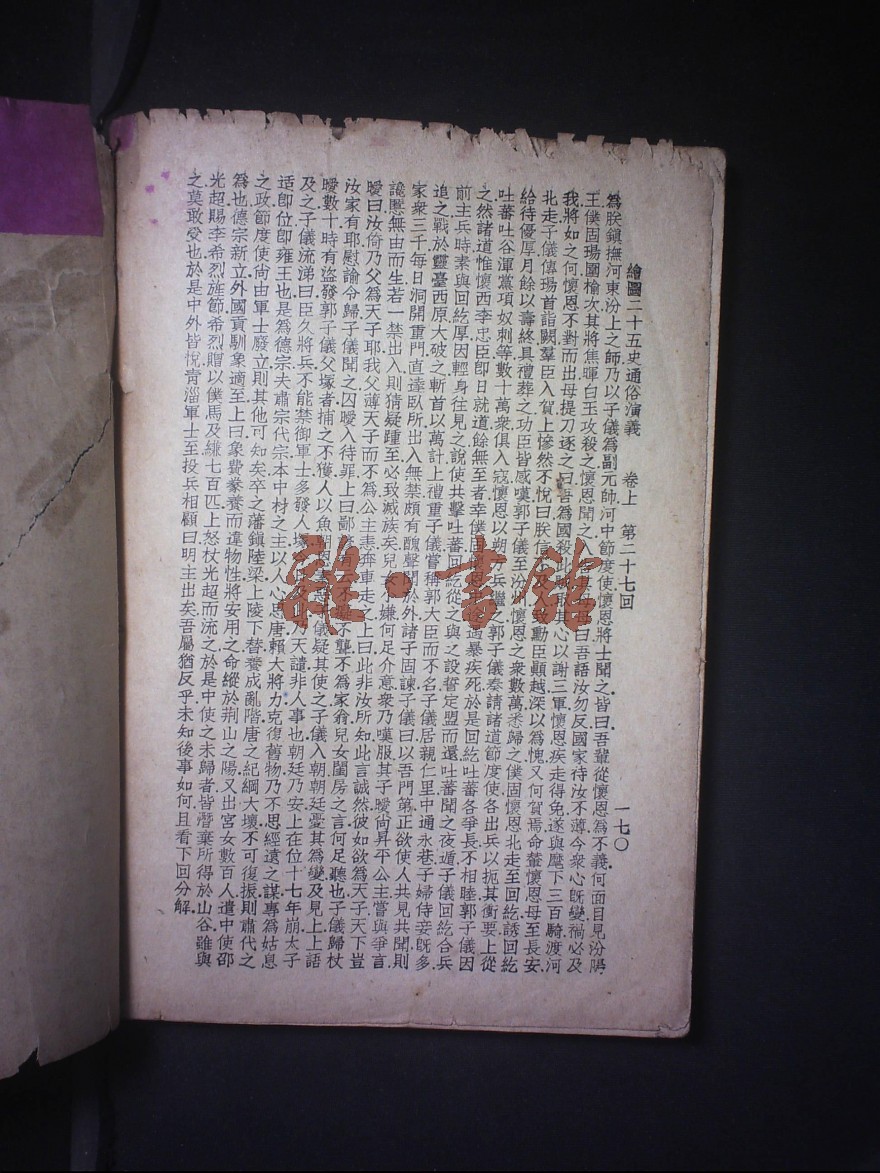 繪圖二十五史通俗演義 卷上 第二十七回 一七〇
爲朕鎭撫河東汾上之師乃以子儀爲副元帥河中節度使懷恩將士聞之皆曰吾輩從懷恩爲不義何面目見汾陽
王僕固瑒圍榆次其將焦暉白玉攻殺之懷恩聞之入告其母母曰吾語汝勿反國家待汝不薄今衆心旣變禍必及
我將如之何懷恩不對而出母提刀逐之曰吾爲國殺此賊取其心以謝三軍懷恩疾走得免遂與麾下三百騎渡河
北走子儀傳瑒首詣闕羣臣入賀上慘然不悅曰朕信不及人致勳臣顚越深以爲愧又何賀焉命輦懷恩母至長安
給待優厚月餘以壽終具禮葬之功臣皆感嘆郭子儀至汾州懷恩之衆數萬悉歸之僕固懷恩北走至回紇誘回紇
吐蕃吐谷渾黨項奴剌等數十萬衆俱入寇懷恩以朔方兵繼之郭子儀奏請諸道節度使各出兵以扼其衝要上從
之然諸道惟懷西李忠臣卽日就道餘無至者幸僕固懷恩中途遇暴疾死於是回紇吐蕃各爭長不相睦郭子儀因
前主兵時素與回紇厚因輕身往見之說使共擊吐蕃回紇從之與之設誓定盟而還吐蕃聞之夜遁子儀回紇合兵
追之戰於靈臺西原大破之斬首以萬計上禮重子儀嘗稱郭大臣而不名子儀居親仁里中通永巷子婦侍妾旣多
家衆三千每日洞開重門直達臥所出入無禁頗有醜聲聞於外諸子固諫子儀曰以吾門第正欲使人共見共聞則
讒慝無由而生若一禁出入則猜疑踵至必致滅族矣兒女小嫌何足介意衆乃嘆服其子曖尙昇平公主嘗與爭言
曖曰汝倚乃父爲天子耶我父薄天子而不爲公主恚奔車走之上曰此非汝所知此言誠然彼如欲爲天子天下豈
汝家有耶慰諭令歸子儀聞之囚曖入待罪上曰鄙諺有云不癡不聾不爲家翁兒女閨房之言何足聽也子儀歸杖
曖數十時有盜發郭子儀父塚者捕之不獲人以魚朝恩素惡子儀疑其使之子儀入朝朝廷憂其爲變及見上上語
及之子儀流涕曰臣久將兵不能禁御軍士多發人塚今日及此乃天譴非人事也朝廷乃安上在位十七年崩太子
适卽位卽雍王也是爲德宗夫肅宗代宗本中材之主以人心思唐賴大將力克復舊物乃不思經遠之謀專爲姑息
之政節度使尙由軍士廢立則其他可知矣卒之藩鎭陸梁上陵下替養成亂階唐之紀綱大壞不可復振則肅代之
爲也德宗新立外國貢馴象適至上曰象費豢養而違物性將安用之命縱於荆山之陽又出宮女數百人遣中使邵
光超賜李希烈旌節希烈贈以僕馬及縑七百匹上怒杖光超而流之於是中使之未歸者皆潛棄所得於山谷雖與
之莫敢受也於是中外皆悅靑淄軍士至投兵相顧曰明主出矣吾屬猶反乎未知後事如何且看下回分解
雜·書館